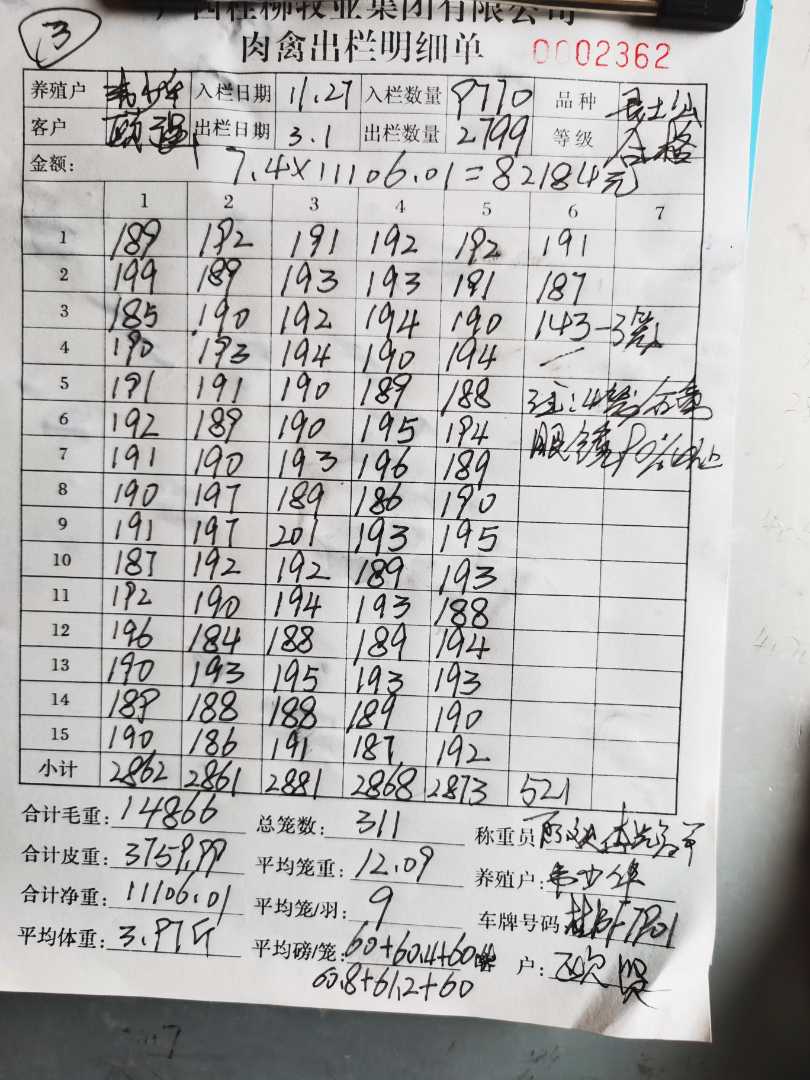 3
广西桂柳牧业集团有限公司
肉禽出栏明细单 0002362
养殖户 韦少华 入栏日期 11.27 入栏数量 9770 品种
客户 出栏日期 3.1 出栏数量 2799 等级 合格
金额: 7.4×11106.01=82184元
1 2 3 4 5 6 7
1 189 192 191 192 192 191
2 199 189 193 193 191 187
3 185 190 192 194 190 143-3笼
4 190 193 194 190 194 —
5 191 191 190 189 188 注:4笼/
6 192 189 190 195 194 90%以上
7 191 190 193 196 189
8 190 197 189 186 190
9 191 197 201 193 195
10 187 192 192 189 193
11 192 190 194 193 188
12 196 184 188 189 194
13 190 193 195 193 193
14 189 188 188 189 190
15 190 186 191 187 192
小计 2862 2861 2881 2868 2873 521
合计毛重: 14866 总笼数: 311 称重员
合计皮重: 3759.99 平均笼重: 12.09 养殖户: 韦少华
合计净重: 11106.01 平均笼/羽: 9 车牌号码
平均体重: 3.97斤 平均磅/笼: 60+60.4+60.4 客户:
60.8+61.2+60